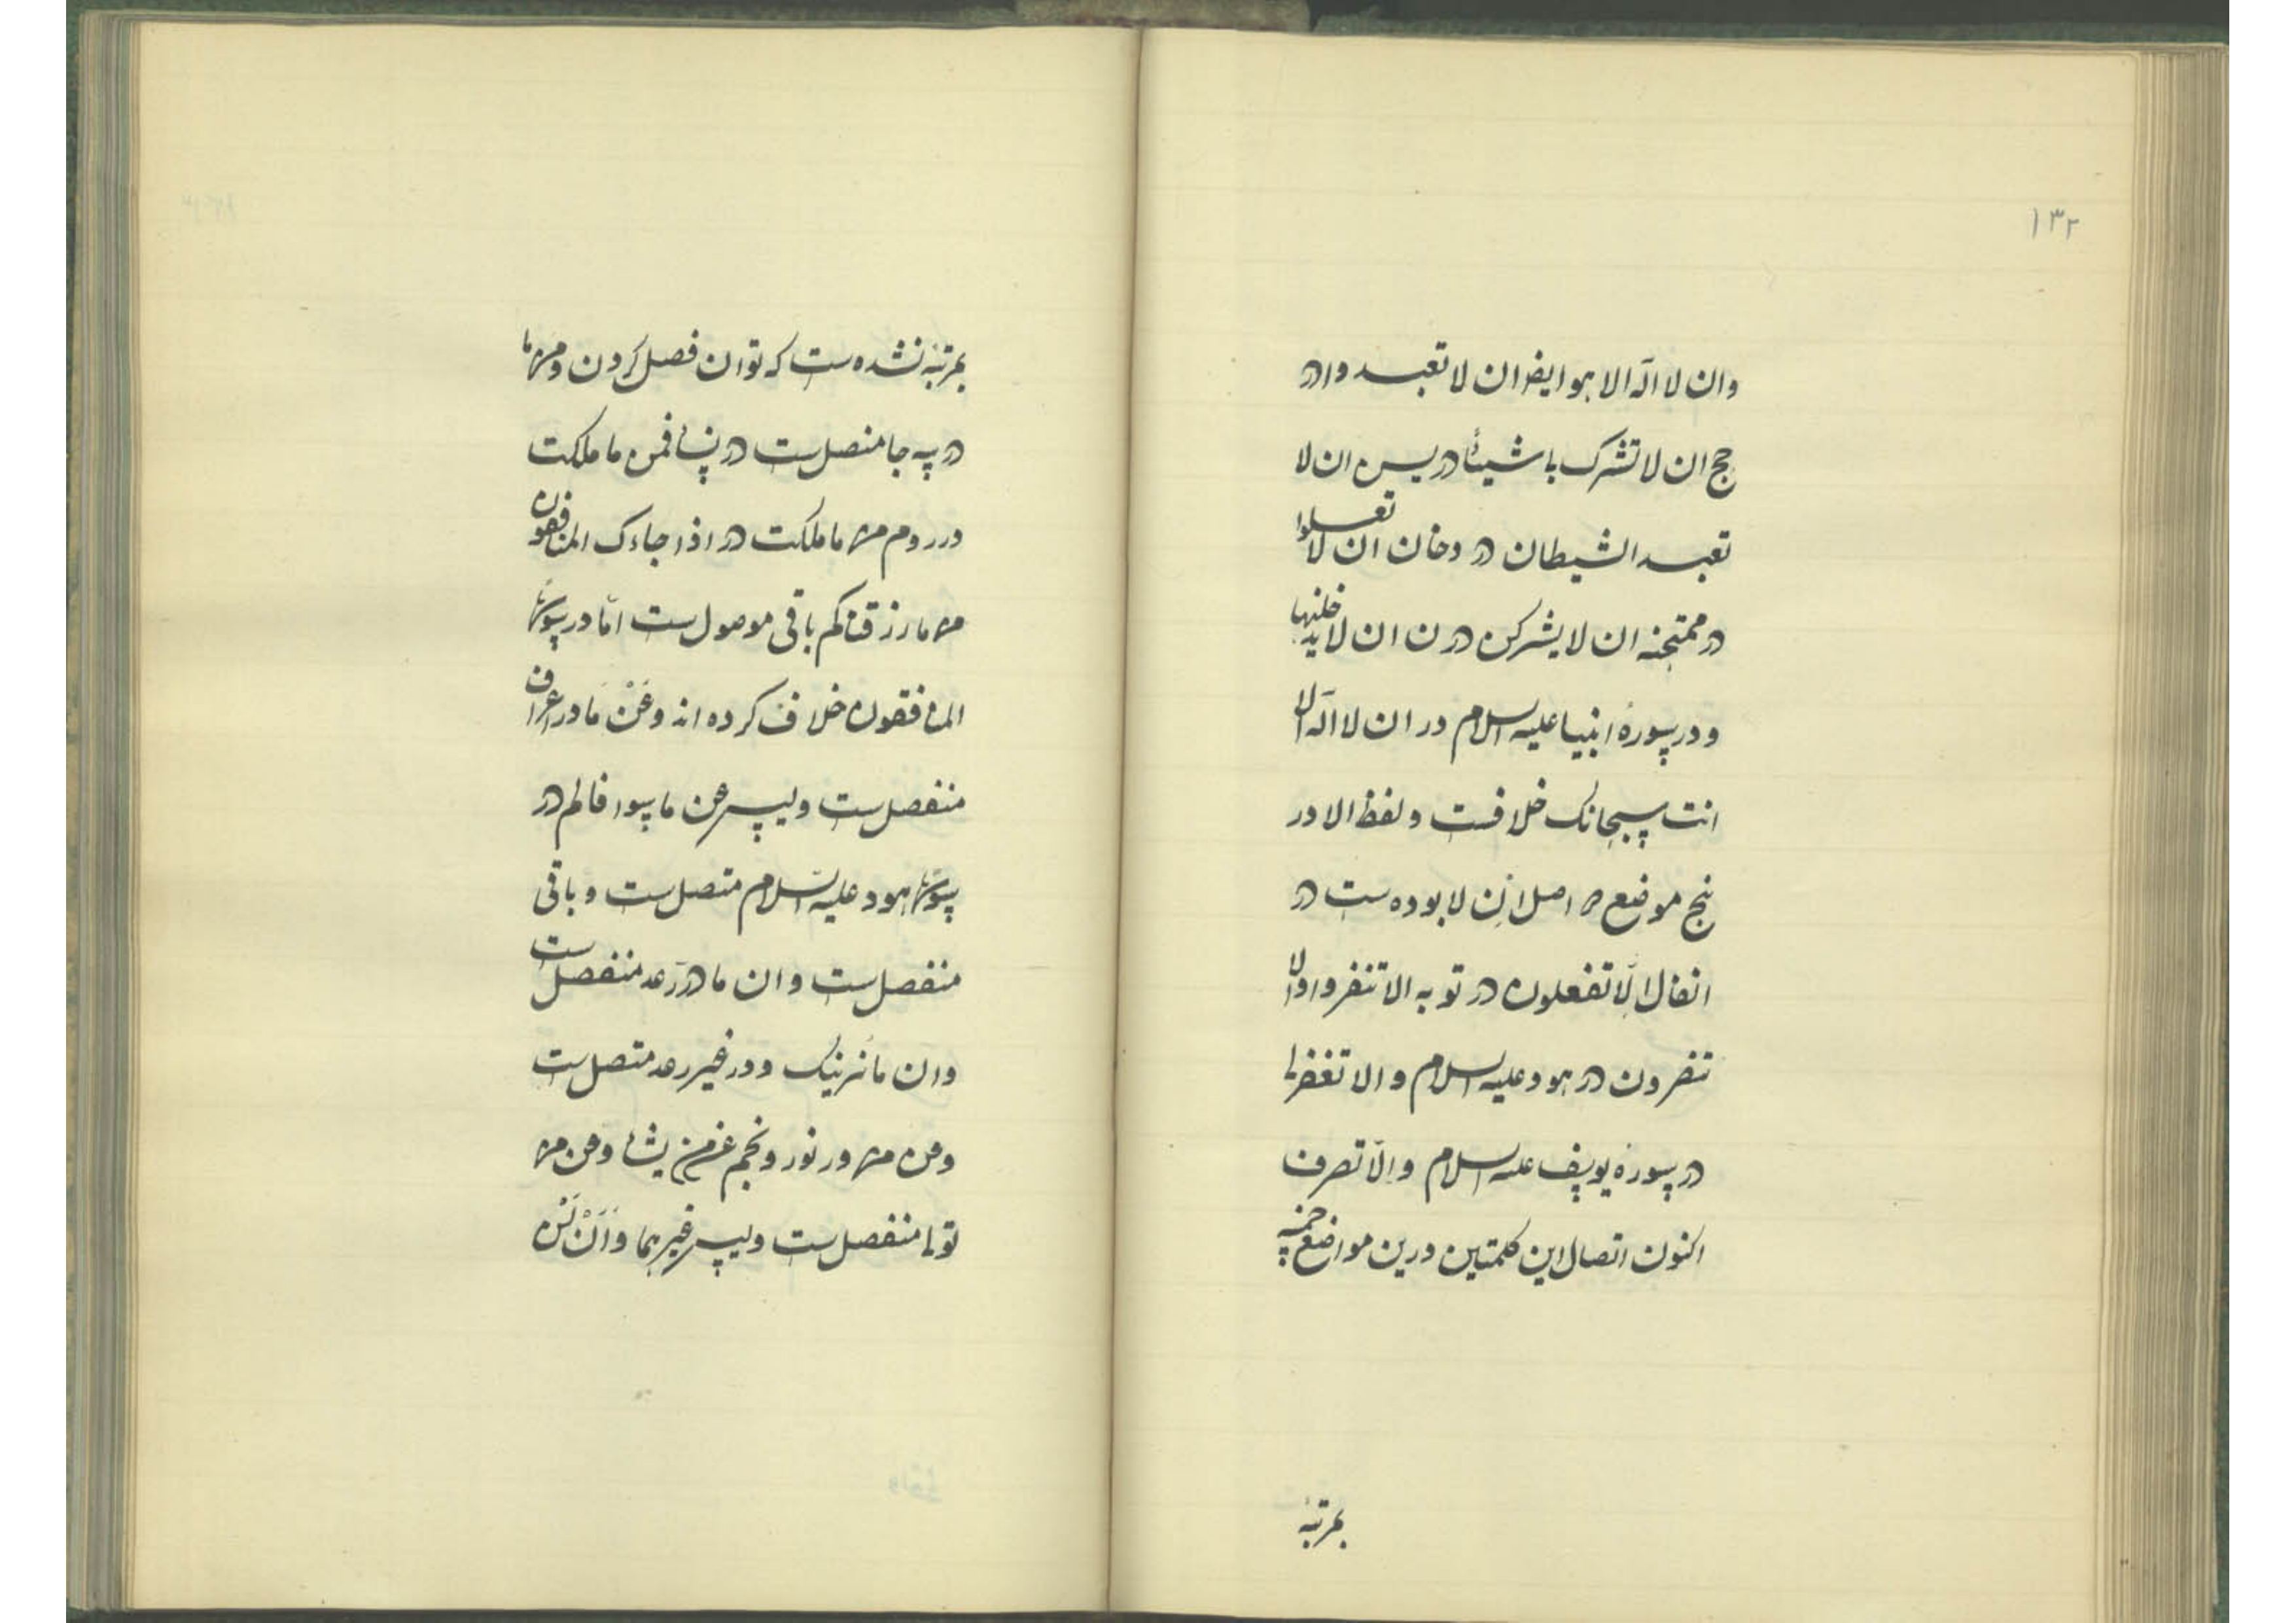 ۱۳۲
وان لا اله الا هو ایضا ان لا تعبدوا در
حج ان لا تشرک با شیئا در یس ان لا
تعبد الشیطان در دخان ان لا تعلوا
در ممتحنه ان لا یشرکن در ن ان لا یدخلنها
و در سورهٔ انبیا علیه السلام در ان لا اله الا
انت سبحانک خلافست و لفظ الا در
پنج موضع اصل اِن لا بوده است در
انفال اِلّا تفعلوه در توبه الا تنفروا و الا
تنصروه در هود علیه السلام و الا تغفرلی
در سورهٔ یوسف علیه السلام و اِلّا تصرف
اکنون اتصال این کلمتین درین مواضع خمسه
بمرتبهٔ
بمرتبهٔ نشده است که توان فصل کردن و من ما
در سه جا منفصل است در نساء فمن ما ملکت
در روم من ما ملکت در اذا جاءک المنافقون
من ما رزقناکم باقی موصول است امّا در سورهٔ
المنافقون خلاف کرده اند وعَنْ مَا در اعراف
منفصل است ولیس عن ما سوا فالم در
سورهٔ هود علیه السلام متصل است و باقی
منفصل است و ان ما در رعد منفصل است
وان ما نرینک و در غیر رعد متصل است
وعن من در نور و نجم عن من یشاء وعن من
تولی منفصل است ولیس غیرهما وَاَنْ لَنْ